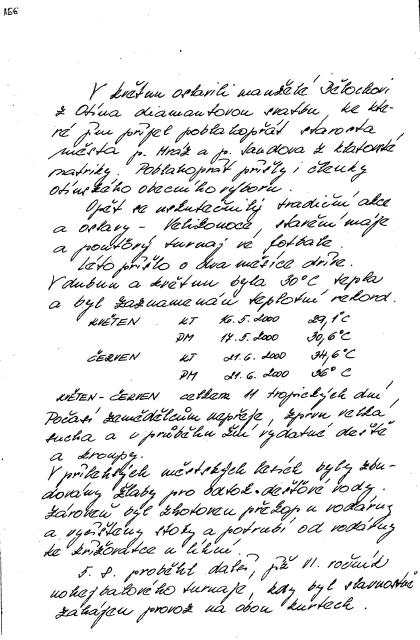 156
V květnu oslavili manželé Bělochovi
z Otína diamantovou svatbu, ke kte-
ré jim přijel poblahopřát starosta
města p. Hráz a p. Jandova z klatovské
matriky. Poblahopřát přišly i členky
otínského obecního výboru.
Opět se uskutečnily tradiční akce
a oslavy - Velikonoce, stavění máje
a pouťový turnaj ve fotbale.
Léto přišlo o dva měsíce dříve.
V dubnu a květnu byla 30°C tepla
a byl zaznamenán teplotní rekord.
KVĚTEN KT 16.5.2000 29,1°C
DM 17.5.2000 30,6°C
ČERVEN KT 21.6.2000 34,6°C
DM 21.6.2000 36°C
KVĚTEN - ČERVEN celkem 11 tropických dní,
Počasí zemědělcům nepřeje, zprvu velká
sucha a v průběhu žní vydatné deště
a kroupy.
V přilehlých městských lesích byly zbu-
dovány žlaby pro odtok dešťové vody.
Zároveň byl zhotoven překop u vodárny
a vyčištěny stoky a potrubí od vodárny
ke křižovatce u líhní.
5. 8. proběhl další, již VI. ročník
nohejbalového turnaje, kdy byl slavnostně
zahájen provoz na obou kurtech.